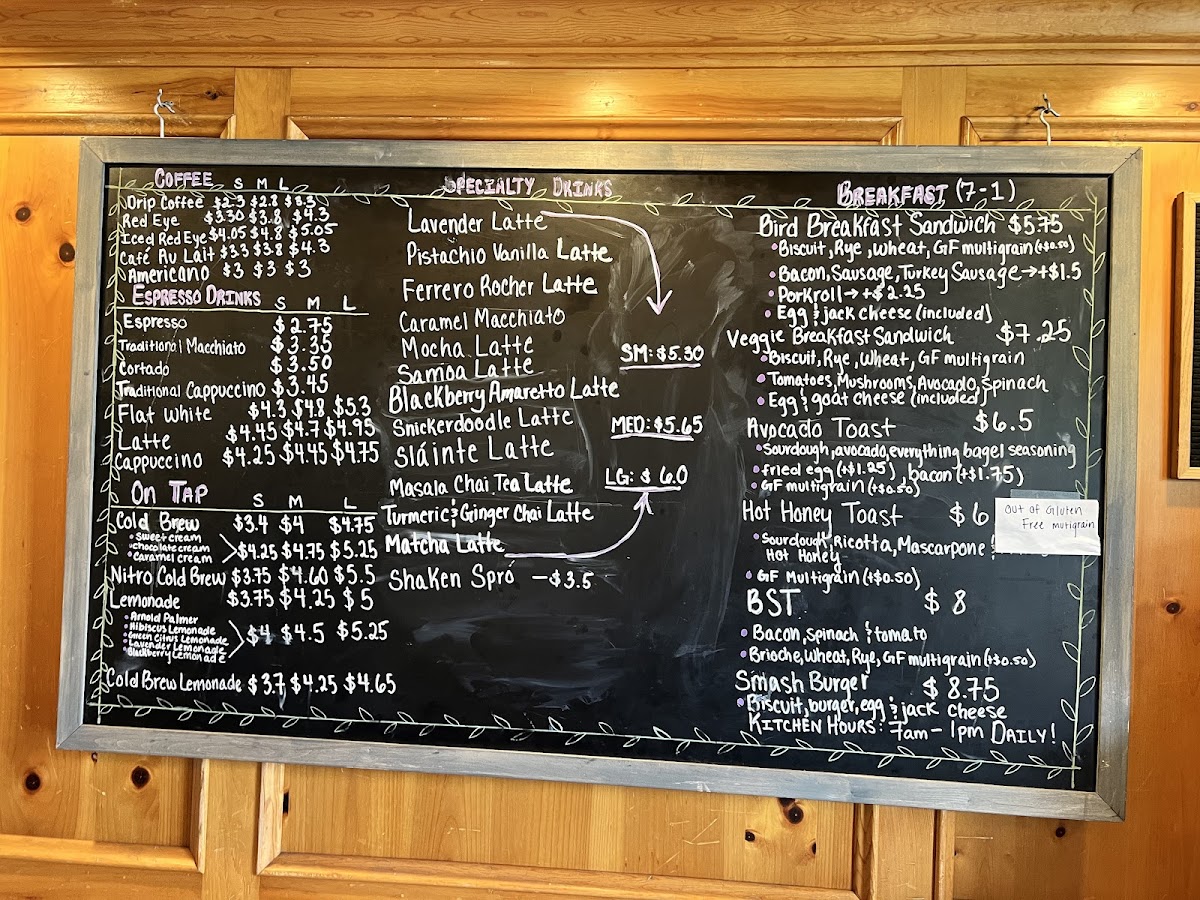 COFFEE S M L
Drip Coffee $2.3 $2.8 $3.3
Red Eye $3.30 $3.8 $4.3
Iced Red Eye $4.05 $4.8 $5.05
Café Au Lait $3.3 $3.8 $4.3
Americano $3 $3 $3
ESPRESSO DRINKS S M L
Espresso $2.75
Traditional Macchiato $3.35
Cortado $3.50
Traditional Cappuccino $3.45
Flat White $4.3 $4.8 $5.3
Latte $4.45 $4.7 $4.95
Cappuccino $4.25 $4.45 $4.75
ON TAP S M L
Cold Brew $3.4 $4 $4.75
• Sweet cream
• Chocolate cream
• Caramel cream
$4.25 $4.75 $5.25
Nitro Cold Brew $3.75 $4.60 $5.5
Lemonade $3.75 $4.25 $5
• Arnold Palmer
• Hibiscus Lemonade
• Green Citrus Lemonade
• Lavender Lemonade
• Blackberry Lemonade
$4 $4.5 $5.25
Cold Brew Lemonade $3.7 $4.25 $4.65
SPECIALTY DRINKS
Lavender Latte
Pistachio Vanilla Latte
Ferrero Rocher Latte
Caramel Macchiato
Mocha Latte
Samoa Latte
Blackberry Amaretto Latte
Snickerdoodle Latte
Sláinte Latte
Masala Chai Tea Latte
Turmeric & Ginger Chai Latte
Matcha Latte
Shaken Spró - $3.5
SM: $5.30
MED: $5.65
LG: $6.0
BREAKFAST (7-1)
Bird Breakfast Sandwich $5.75
• Biscuit, Rye, Wheat, GF multigrain (+$0.50)
• Bacon, Sausage, Turkey Sausage → +$1.5
• Porkroll → +$2.25
• Egg & jack cheese (included)
Veggie Breakfast Sandwich $7.25
• Biscuit, Rye, Wheat, GF multigrain
• Tomatoes, Mushrooms, Avocado, Spinach
• Egg & goat cheese (included)
Avocado Toast $6.5
• Sourdough, avocado, everything bagel seasoning
• fried egg (+$1.25), bacon (+$1.75)
• GF multigrain (+$0.50)
Hot Honey Toast $6
• Sourdough, Ricotta, Mascarpone &
Hot Honey
• GF Multigrain (+$0.50)
Out of Gluten
Free mutigrain
BST $8
• Bacon, Spinach & tomato
• Brioche, Wheat, Rye, GF multigrain (+$0.50)
Smash Burger $8.75
• Biscuit, burger, egg & jack cheese
KITCHEN HOURS: 7am - 1pm DAILY!